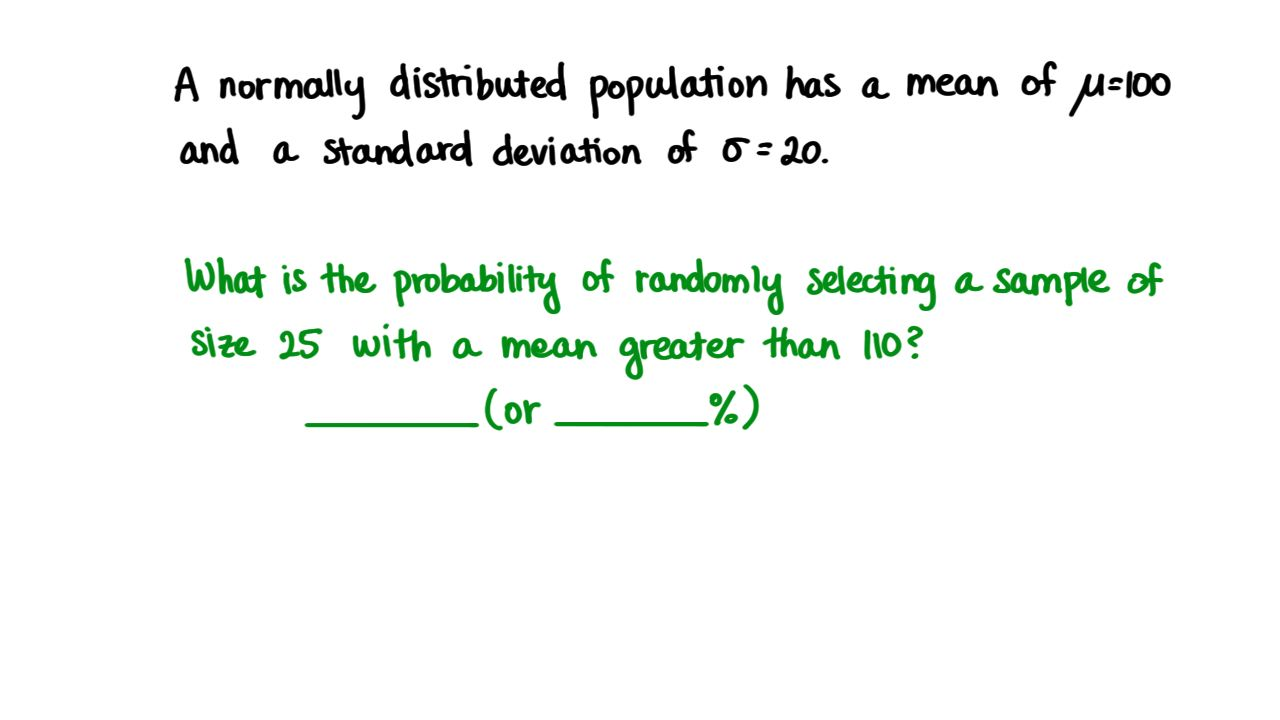 A normally distributed population has a mean of μ=100
and a standard deviation of σ=20.
What is the probability of randomly selecting a sample of
size 25 with a mean greater than 110?
_______(or _______%)